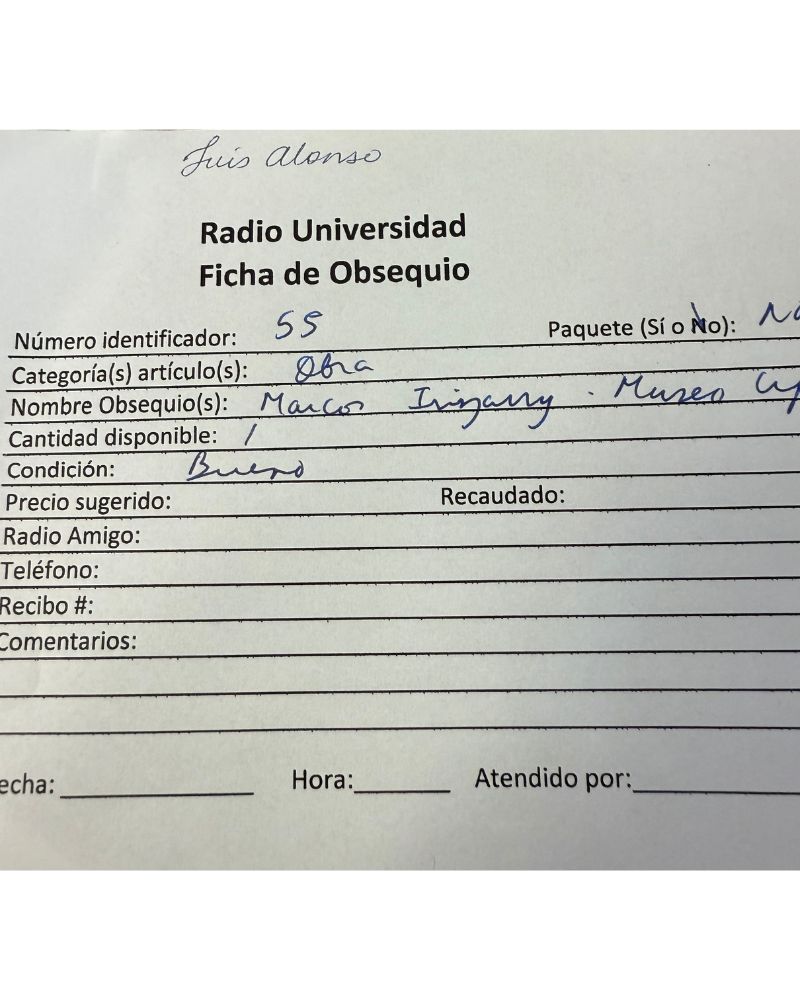 Luis Alonso
Radio Universidad
Ficha de Obsequio
Número identificador: 55 Paquete (Sí o No): No
Categoría(s) artículo(s): Obra
Nombre Obsequio(s): Marcos Irizarry - Museo
Cantidad disponible: 1
Condición: Bueno
Precio sugerido: Recaudado:
Radio Amigo:
Teléfono:
Recibo #:
Comentarios:
echa: Hora: Atendido por: